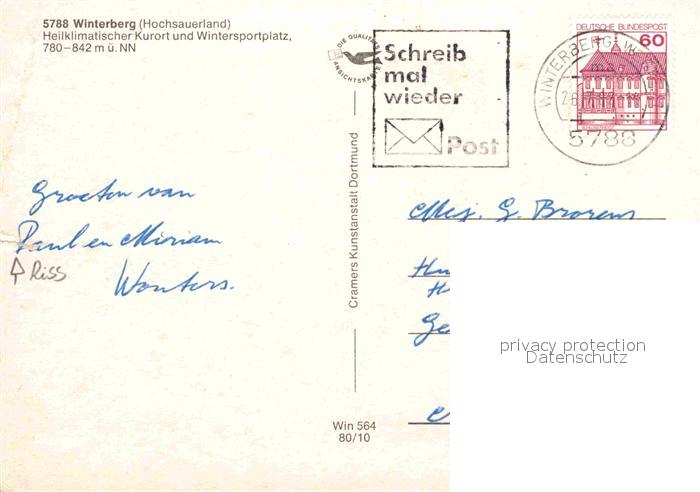 5788 Winterberg (Hochsauerland)
Heilklimatischer Kurort und Wintersportplatz,
780–842 m ü. NN
DIE QUALITÄTS
ANSICHTSKARTE
Schreib
mal
wieder
Post
DEUTSCHE BUNDESPOST
60
WINTERBERG, W
5788
Groeten van
Paul en Miriam
Wouters.
Riss
Cramers Kunstanstalt Dortmund
Mej. G. Brorens
Hu
H
Ge
privacy protection
Datenschutz
Win 564
80/10